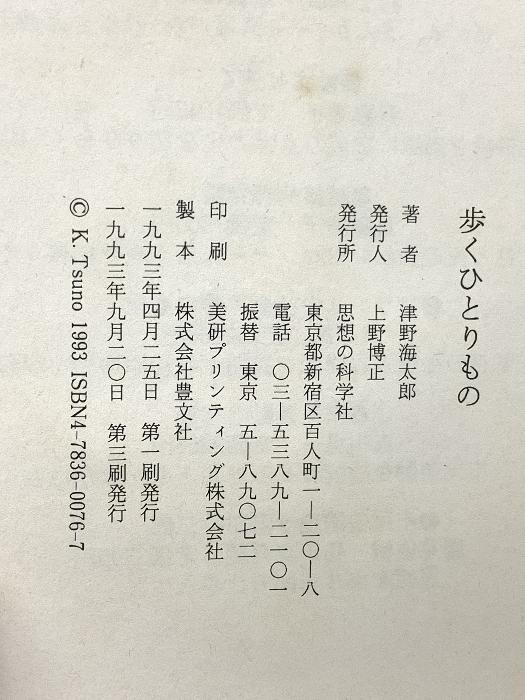 歩くひとりもの
著者 津野海太郎
発行人 上野博正
発行所 思想の科学社
東京都新宿区百人町一―二〇―八
電話 〇三―五三八九―二一〇一
振替 東京 五―八九〇七二
印刷 美研プリンティング株式会社
製本 株式会社豊文社
一九九三年四月二五日 第一刷発行
一九九三年九月二〇日 第三刷発行
© K. Tsuno 1993 ISBN4-7836-0076-7